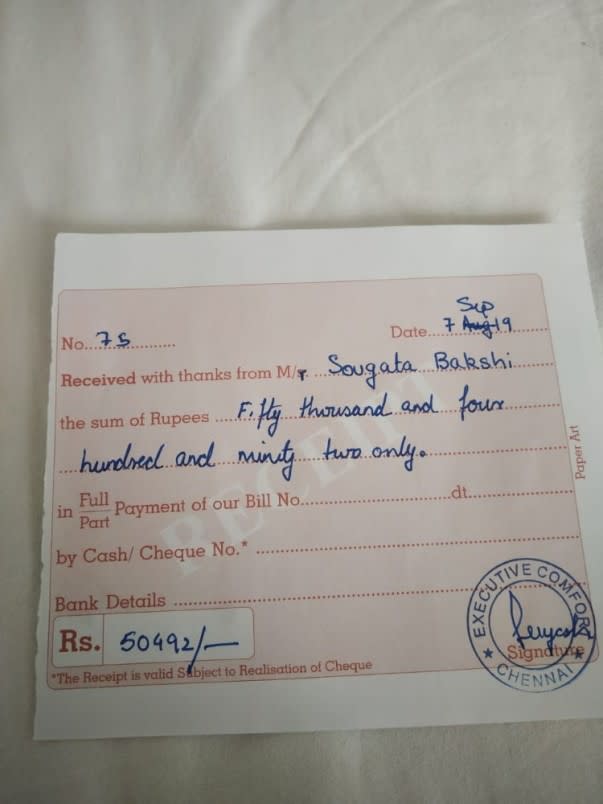 Sep
No. 75 Date 7 Aug 19
Received with thanks from M/r. Sougata Bakshi
the sum of Rupees Fifty thousand and four
hundred and ninety two only.
in Full/Part Payment of our Bill No. dt.
by Cash/ Cheque No.*
Bank Details
Rs. 50492/-
*The Receipt is valid Subject to Realisation of Cheque
RECEIPT
Paper Art
EXECUTIVE COMFORT
Signature
★ CHENNAI ★